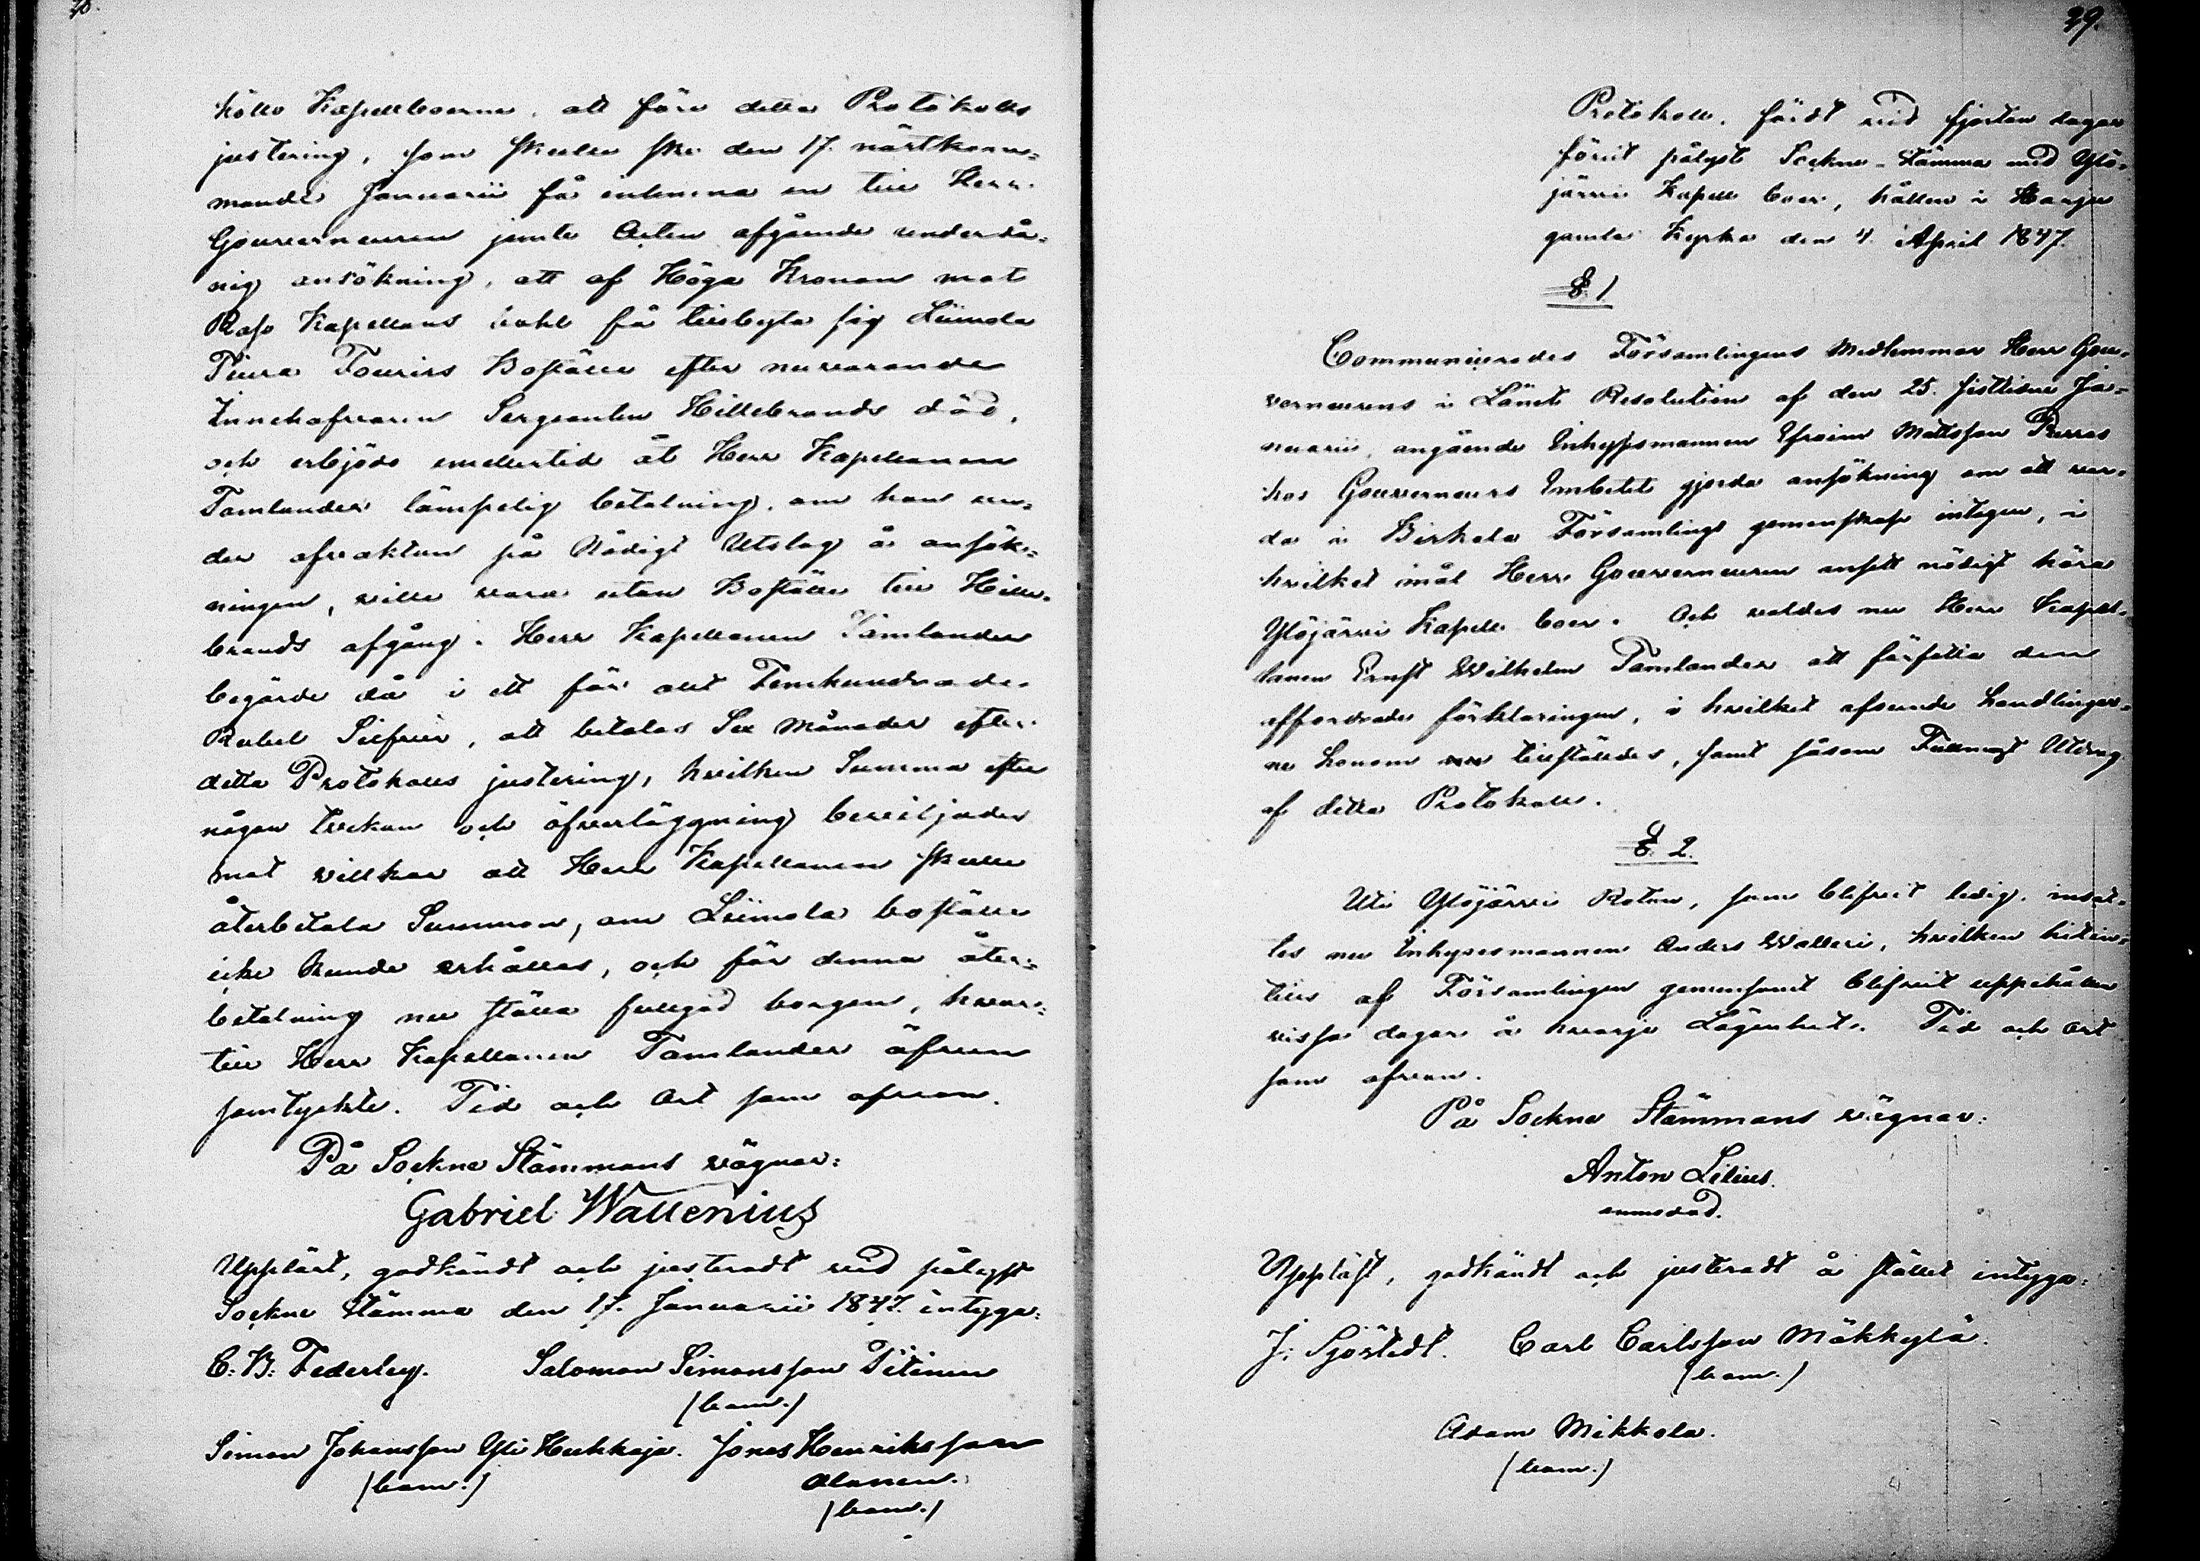 höllo Kapellboerne, att före detta Protokolls
justering, som skulle ske den 17. nästkom¬
mande Januarii få inlemna en till Herr
Gouverneuren jemte Acten afgående underdå¬
nig ansökning, att af Höga Kronan mot
Kapellans få tillbyta sig Liimola
Fourirs Boställe efter nuvarande
Innehafvaren Sergeanten Hillebrands död,
och erbjödo emedlertid åt Herr Kapellanen
Tamlander lämpelig betalning, om han un¬
der afvaktan på Nådigt Utslag å ansök¬
ningen, ville vara utan Boställe till Hille¬
brands afgång. Herr Kapellanen Tamlander
begärde då i ett för allt Femhundrade
Rubel Silfver, att betalas Sex Månader efter
detta Protokolls justering, hvilken Summa efter
någon tvekan och öfverläggning beviljades
mot villkor att Herr Kapellanen skulle
återbetala Summan, om Liimola boställe
icke kunde erhållas, och för denna åter¬
betalning nu ställa fullgod borgen, hvar¬
till Herr Kapellanen Tamlander äfven
samtyckte. Tid och Ort som ofvan.
På Sockne Stämmans vägnar:
Gabriel Wallenius
Uppläst, godkändt och justeradt vid pålyst
Sockne Stämma den 17. Januarii 1847. intyga:
C: B: Federley. Salomon Simonsson Pitinen
(bom.)
Simon Johansson Yli Huhkaja. Jonas Henriksson
(bom.) Alanen.
(bom.)
39.
Protokoll, fördt vid fjorton dagar
förut pålyst Sockne-Stämma med Ylö¬
järvi Kapell boer, hållen i Harju
gamla Kyrka den 4. April 1847.
§. 1
Communicerades Församlingens Medlemmar Herr Gou¬
verneurens i Länet Resolution af den 25. sistlidne Ja¬
nuarii, angående Inhysesmannen Efraim Mattsson
hos Gouverneurs Embetet gjorda ansökning om att var¬
da i Birkala Församlings gemenskap intagen, i
hvilket mål Herr Gouverneuren ansett nödigt höra
Ylöjärvi Kapell boer. Och valdes nu Herr Kapel¬
lanen Ernst Wilhelm Tamlander att författa den
affordrade förklaringen, i hvilket afseende handlingar¬
ne honom tillställdes, samt såsom Fullmagt Utdrag
af detta Protokoll.
§. 2.
Uti Ylöjärvi Rotan, som blifvit ledig, insat¬
tes nu Inhysesmannen Anders Walleri, hvilken hitin¬
tills af Församlingen gemensamt blifvit uppehållen
vissa dagar å hvarje Lägenhet. Tid och Ort
som ofvan.
På Sockne Stämmans vägnar:
Anton Lilius.
Uppläst, godkändt och justeradt å stället intyga:
J: Sjöstedt. Carl Carlsson Mäkkylä.
(bom.)
Adam Mikkola.
(bom.)